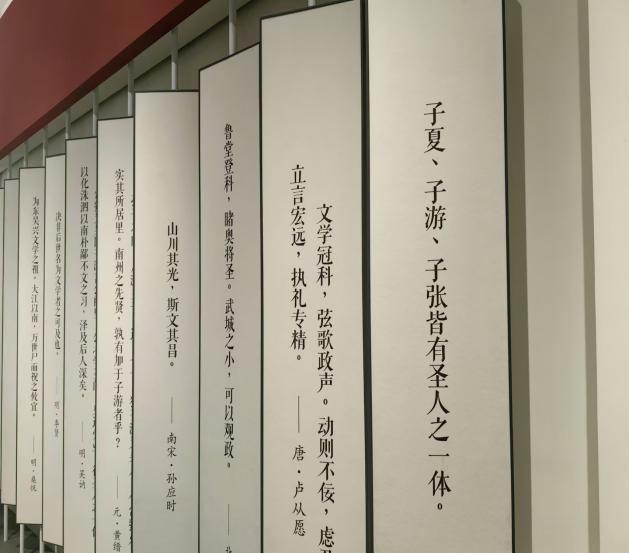 子夏、子游、子张皆有圣人之一体。
文学冠科，弦歌政声。动则不佞，虑
立言宏远，执礼专精。 —— 唐·卢从愿
鲁堂登科，睹奥将圣。武城之小，可以观政。 —— 北
山川其光，斯文其昌。 —— 南宋·孙应时
实其所居里。南州之先贤，孰有加于子游者乎？ —— 元·黄缙
以化洙泗以南朴鄙不文之习，泽及后人深矣。 —— 明·吴讷
后世名为文学者之可及也。 明·
为东吴兴文学之祖。大江以南，万世尸而祝之攸宜。 —— 明·桑悦